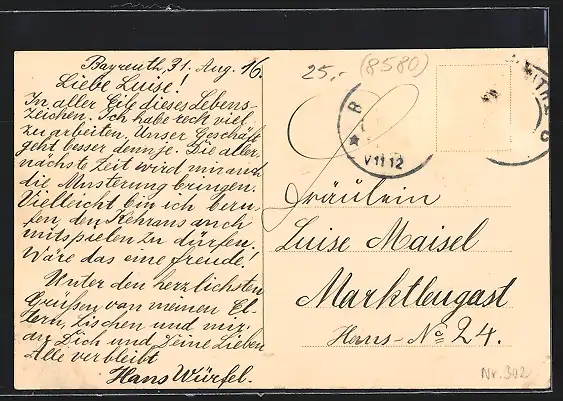 Bayreuth, 31. Aug. 16.
Liebe Luise!
In aller Eile dieses Lebens-
zeichen. Ich habe recht viel
zu arbeiten. Unser Geschäft
geht besser denn je. Die aller
nächste Zeit wird mir auch
die Musterung bringen.
Vielleicht bin ich beru-
fen den Kehraus auch
mitspielen zu dürfen.
Wäre das eine Freude!
Unter den herzlichsten
Grüßen von meinen El-
tern, Lischen und mir
an Dich und Deine Lieben
Alle verbleibt
Hans Würfel.
25,-
(8580)
B
V 11 12
Fräulein
Luise Maisel
Marktleugast
Haus-No 24.
Nr. 302